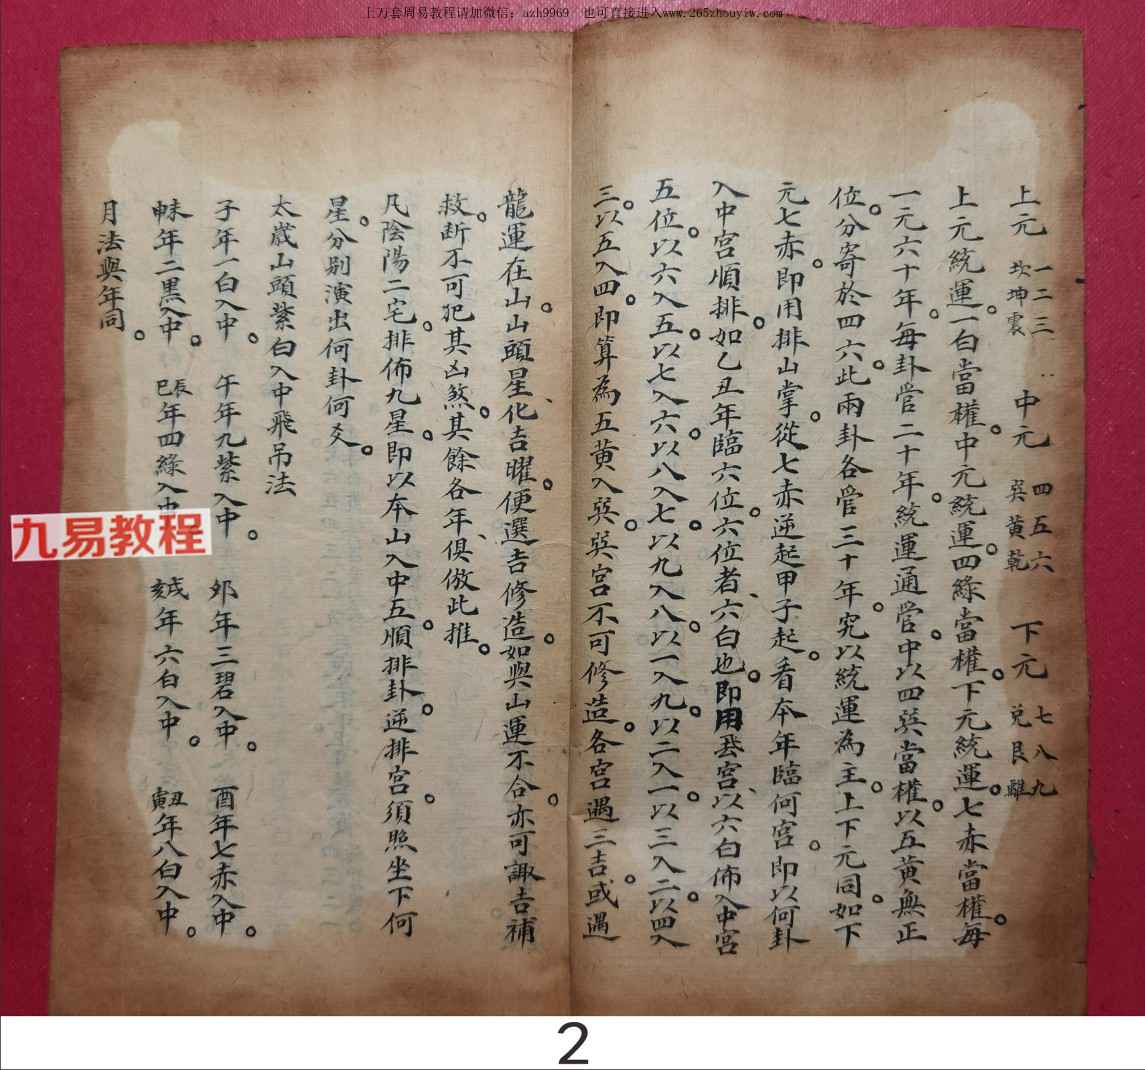 上万套周易教程请加微信：azh9969　也可直接进入www.265zhouyiw.com
上元 一二三 坎坤震 中元 四五六 巽黄乾 下元 七八九 兌艮離
上元統運一白當權。中元統運。四綠當權。下元統運。七赤當權。每
一元六十年。每卦管二十年。統運通管。中以四巽當權。以五黃無正
位。分寄於四六。此兩卦各管三十年。究以統運為主。上下元同。如下
元七赤。即用排山掌。從七赤逆起甲子起。看本年臨何宮。即以何卦
入中宮順排。如乙丑年臨六位。六位者、六白也。即用宮、以六白佈入中宮
五位。以六入五。以七入六。以八入七。以九入八。以一入九。以二入一。以三入二。以四入
三。以五入四。即算為五黄入巽。巽宮不可修造。各宮遇三吉。或遇
龍運在山。山頭星化、吉曜。便選吉修造。如與山運不合。亦可諏吉補
救。斷不可犯其凶煞。其餘各年、俱倣此推。
凡陰陽二宅。排佈九星。即以本山入中五。順排卦。逆排宮。須照坐下何
星。分別演出何卦何爻。
太歲山頭紫白入中飛吊法
子年一白入中。 午年九紫入中。 卯年三碧入中。 酉年七赤入中。
申未年二黑入中。 巳辰年四綠入中 亥戌年六白入中。 寅丑年八白入中。
月法與年同。
九易教程
2